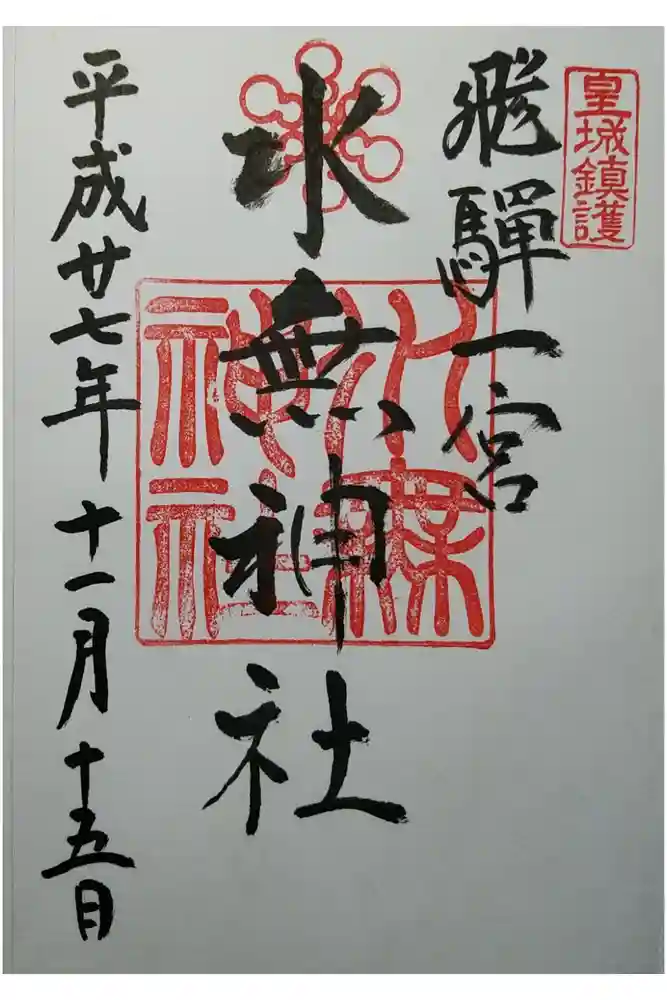 皇城鎮護
飛驒一宮
水無神社
平成廿七年十一月十五日